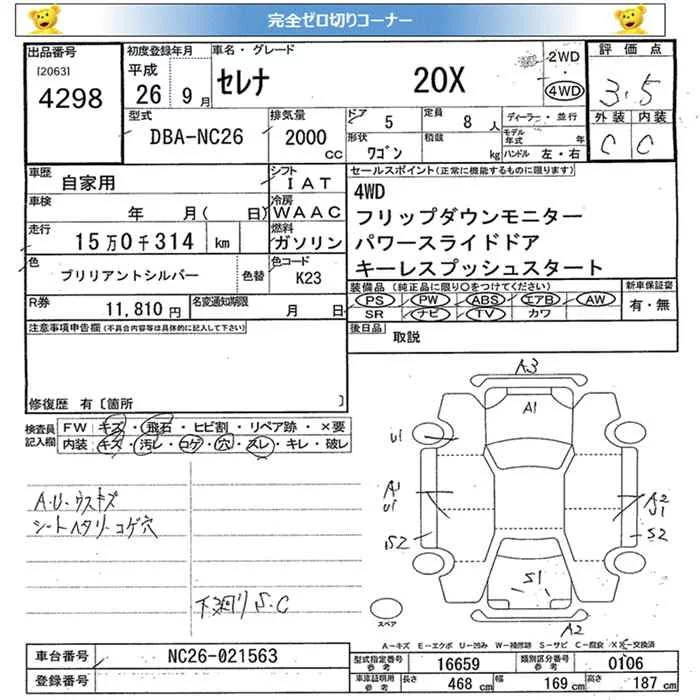 完全ゼロ切りコーナー
出品番号 初度登録年月 車名・グレード 評価点
[2063] 平成 セレナ 20X 2WD・4WD
4298 26年 9月 3.5
型式 排気量 ドア 5 定員 8人 ディーラー・並行 外装 内装
DBA-NC26 2000cc 形状 ワゴン 積載 kg モデル年式 年 C C
ハンドル 左・右
車歴 自家用 シフト IAT セールスポイント(正常に機能するものに限ります)
車検 年 月( 日) 冷房 WAAC 4WD
フリップダウンモニター
走行 15万0千314 km 燃料 ガソリン パワースライドドア
色 ブリリアントシルバー 色替 色コード K23 キーレスプッシュスタート
R券 11,810円 名変通知期限 月 日 装備品(純正品に限り○をつけてください) 新車保証書
PS PW ABS エアB AW 有・無
SR ナビ TV カワ
注意事項申告欄(不具合内容等は具体的に記入して下さい) 後日品 取説
修復歴 有〔箇所 〕
検査員記入欄 FW キズ・飛石・ヒビ割・リペア跡・×要
内装 キズ・汚レ・コゲ・穴・スレ・キレ・破レ
A3
A1
U1
A1 U1
A2 U1
S2
S2
S1
A2
A・U・ウスキズ
シートヘタリ・コゲ穴
下廻りS.C
スペア
A－キズ E－エクボ U－凹み W－補修跡 S－サビ C－腐食 X X－交換済
車台番号 NC26-021563 型式指定番号 参考 16659 類別区分番号 参考 0106
登録番号 車庫証明用 参考 長さ 468cm 幅 169cm 高さ 187cm